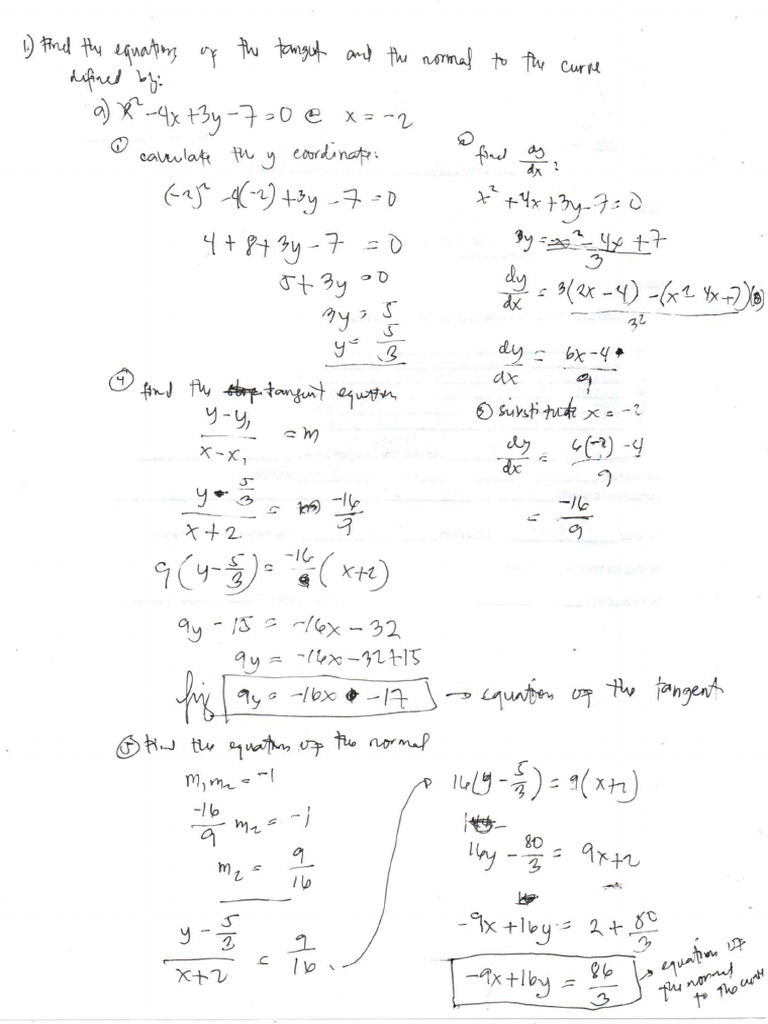 1.) Find the equations of the tangent and the normal to the curve
defined by:
a) x² - 4x + 3y - 7 = 0 @ x = -2
① calculate the y coordinate:
(-2)² - 4(-2) + 3y - 7 = 0
4 + 8 + 3y - 7 = 0
5 + 3y = 0
3y = 5
y = 5/3
② find dy/dx:
x² + 4x + 3y - 7 = 0
3y = x² - 4x + 7 / 3
dy/dx = 3(2x - 4) - (x² - 4x + 7)(0) / 3²
dy/dx = 6x - 4 / 9
③ substitute x = -2
dy/dx = 6(-2) - 4 / 9
= -16/9
④ find the tangent equation
y - y₁ / x - x₁ = m
y - 5/3 / x + 2 = -16/9
9(y - 5/3) = -16(x + 2)
9y - 15 = -16x - 32
9y = -16x - 32 + 15
9y = -16x - 17 → equation of the tangent
⑤ Find the equation of the normal
m₁m₂ = -1
-16/9 m₂ = -1
m₂ = 9/16
y - 5/3 / x + 2 = 9/16
16(y - 5/3) = 9(x + 2)
16y - 80/3 = 9x + 2
-9x + 16y = 2 + 80/3
-9x + 16y = 86/3 → equation of
the normal
to the curve